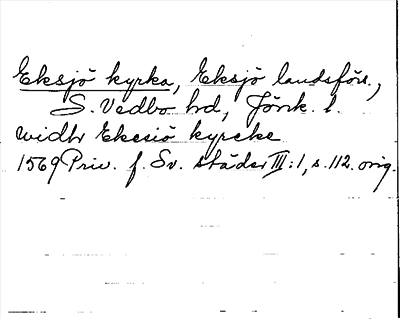 Eksjö kyrka, Eksjö landsförs.,
S. Vedbo hd, Jönk. l.
widhr Ekesiö kyrcke
1569 Priv. f. Sv. städer III:1, s. 112. orig.